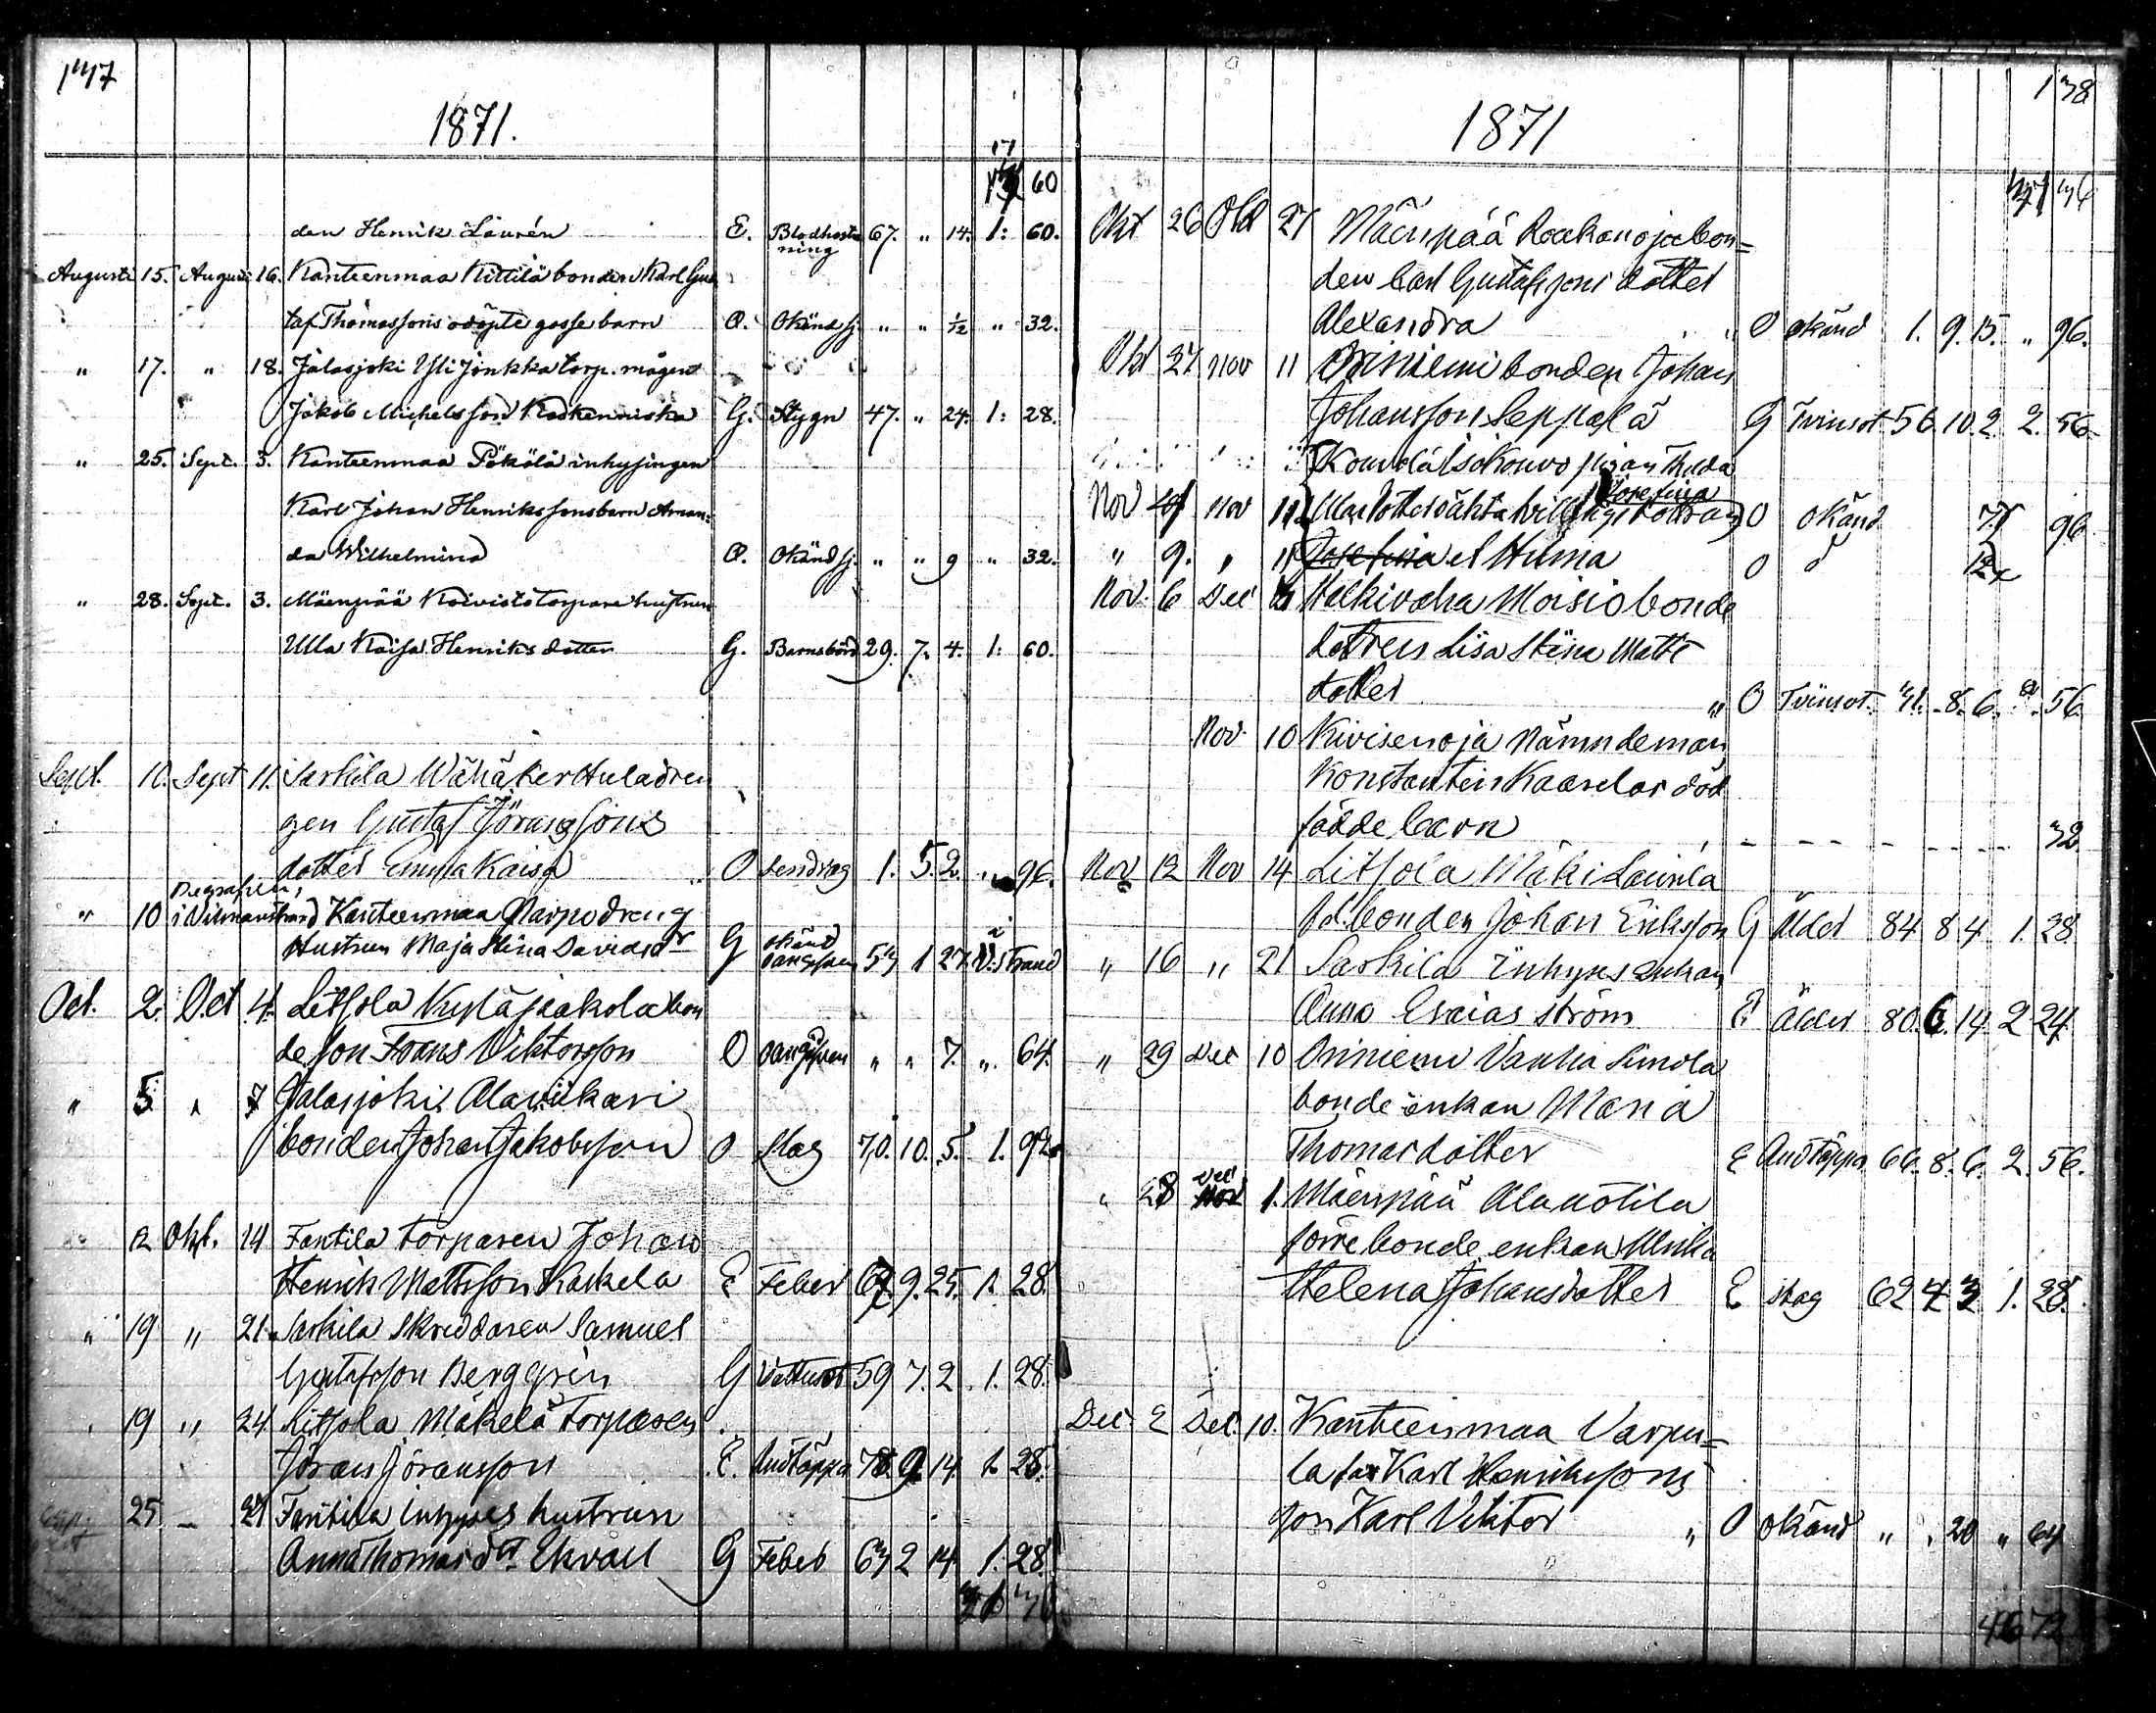 1871.
60
den Henrik Laurén E. Blodhosta 67. " 14. 1: 60.
ning
Augusti 15. August 16. Kanteenmaa Kittilä bonden Karl Gus
taf Thomassons odöpte gosse barn O. Okänd sj. " " 1/2 " 32.
" 17. " 18. Jalasjoki Yli Jönkka torp. mågen
Jakob Michelsson Koskenniska G. Stygn 47. " 24. 1: 28.
" 25. Sept. 3. Kanteenmaa Pökölä inhysingen
Karl Johan Henrikssons barn Aman=
da Wilhelmina O. Okänd sj. " " 9 " 32.
" 28. Sept. 3. Mäenpää Koivisto torpare hustrun
Ulla Kaisa Henriksdotter G. Barnsbörd 29. 7. 4. 1: 60.
Sept. 10. Sept 11. Sarkila Wähäkerttula dren
gen Gustaf Göranssons
dotter Emma Kaisa O Sendrag 1. 5. 2. " 96.
Begrafven,
" 10 i Vilmanstrand Kanteenmaa dreng
Hustrun Maja Stina Davidsdr G okänd 1 27. V. strand
Oct. 2. Oct 4. Litsola Kyläjaakola bon
de son Frans Viktorsson O " " 7. " 64.
" 5. " 7 Jalasjoki Alaviikari
bonden Johan Jakobsson O Slag 70. 10. 5. 1. 92
12 Okt. 14 Fantila torparen Johan
Henrik Mattsson Kaskela E Feber 67 9. 25. 1. 28.
" 19 " 21. Sarkila Skreddaren Samuel
Gustafsson Berggrén G Vattusot 59 7. 2. 1. 28.
" 19 " 24 Litsola Mäkelä torparen
Göran Göransson E. Andtäppa 78. 9 14. 1. 28.
25. — 27 Fantila inhyses hustrun
Anna Thomasdr Ekvall G Feber 63 2 14. 1. 28.
138
1871
Okt 26 Okt 27 Mäenpää Raukanoja bon=
den Carl Gustafssons dotter
Alexandra " O okänd 1. 9. 15. " 96.
Okt 27 Nov 11 Oriniemi bonden Johan
Johansson Seppälä G Tvinsot 56 10. 2 2. 56.
pigan Hulda
Josefina
Nov 4 Nov 11 O okänd 7. 96
" 9. " 11 Josefina et Hilma O d 12
Nov. 6 Dec Walkivaha Moisio bonde
dottren Lisa Stina Matts
dotter " O Tvinsot. 8. 6. 56.
Nov. 10 Kivisenoja Nämndeman
Konstantin Kaarelas död
födde barn 32.
Nov 12 Nov 14 Litsola Mäki Laurila
bonden Johan Eriksson G Ålder 84 8 4 1. 28.
" 16 " 21 Sarkila Inhyses enkan
Anna Esaias Ström E ålder 80. 6. 14. 2 24.
" 29 Dec 10 Oriniemi Vanha Simola
bonde enkan Maria
Thomasdotter E Andtäppa 66. 8. 6. 2. 56.
Dec
" 28 Nov 1. Mäenpää Alanotila
förre bonde enkan Ulrika
Helena Johansdotter E slag 62 4 3 1. 28.
Dec 2 Dec. 10. Kanteenmaa Varpu=
la Karl Henrikssons
son Karl Viktor " O okänd " " 20 " 64
4672